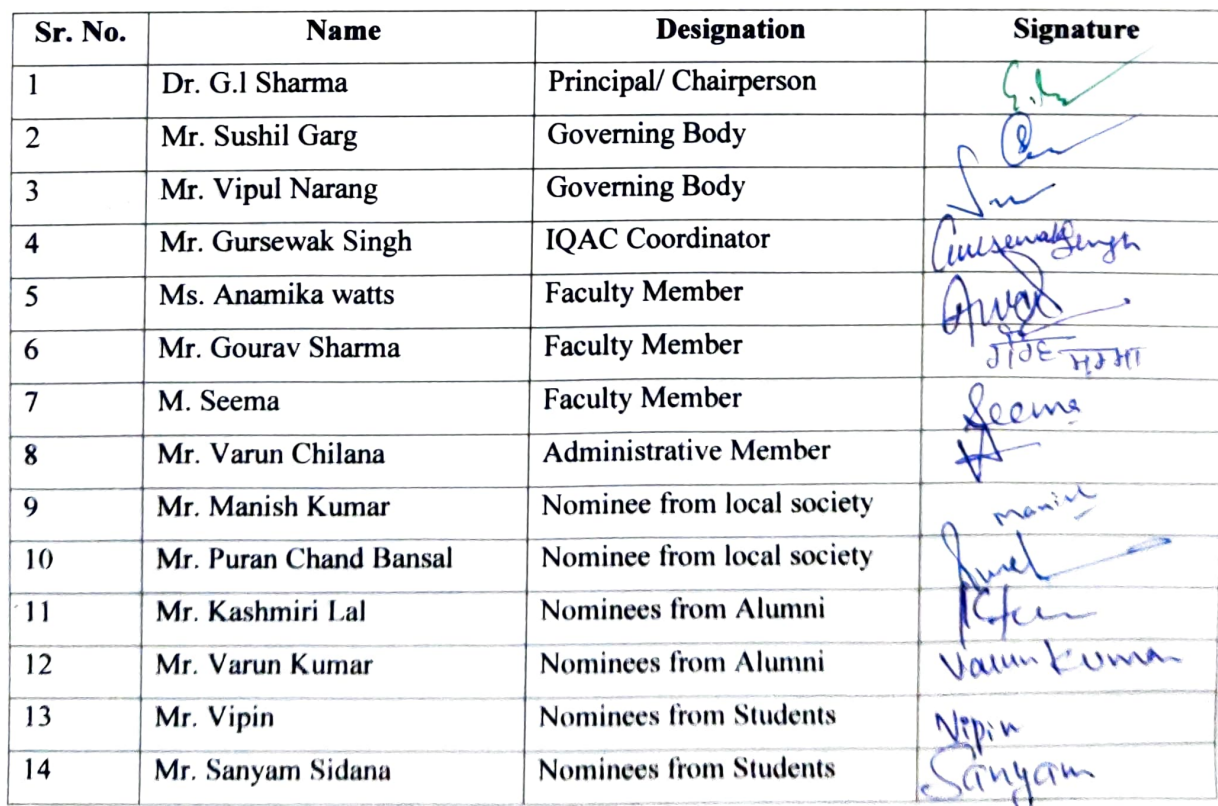 Sr. No. Name Designation Signature
1 Dr. G.l Sharma Principal/ Chairperson
2 Mr. Sushil Garg Governing Body
3 Mr. Vipul Narang Governing Body
4 Mr. Gursewak Singh IQAC Coordinator GursewakSingh
5 Ms. Anamika watts Faculty Member
6 Mr. Gourav Sharma Faculty Member
7 M. Seema Faculty Member Seema
8 Mr. Varun Chilana Administrative Member
9 Mr. Manish Kumar Nominee from local society Manish
10 Mr. Puran Chand Bansal Nominee from local society
11 Mr. Kashmiri Lal Nominees from Alumni
12 Mr. Varun Kumar Nominees from Alumni Varun Kumar
13 Mr. Vipin Nominees from Students Vipin
14 Mr. Sanyam Sidana Nominees from Students Sanyam